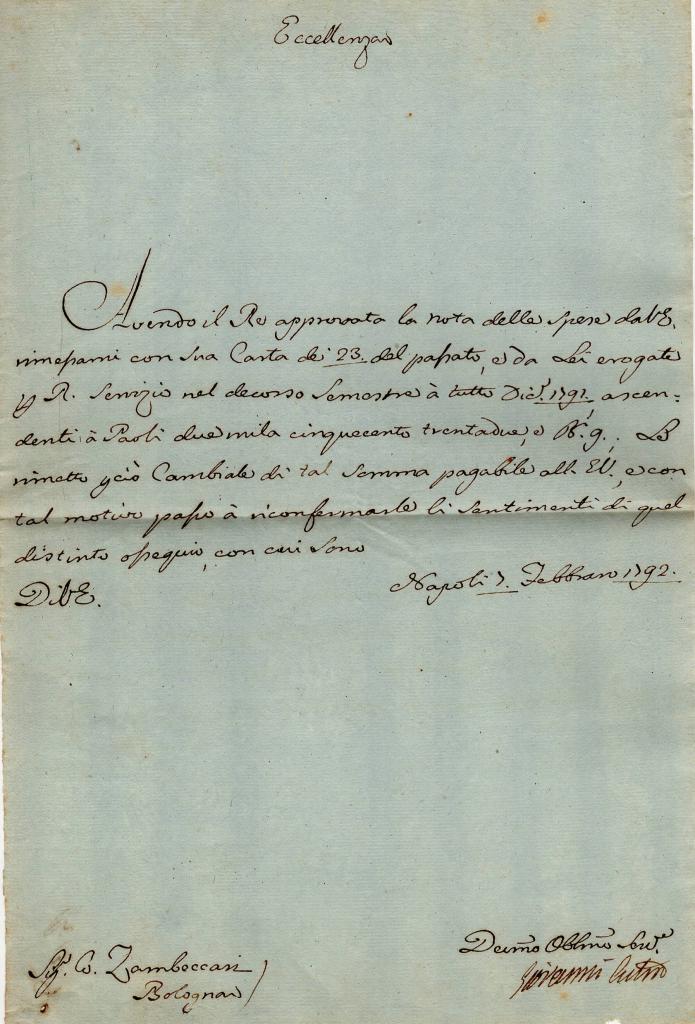 Eccellenza
Avendo il Re approvata la nota delle spese da V.E.
rimessami con sua Carta de' 23. del passato, e da Lei erogate
p R. Servizio nel decorso Semestre à tutto Dic.e 1791. ascen-
denti à Paoli due mila cinquecento trentadue, e B. 9., Le
rimetto p ciò Cambiale di tal somma pagabile all' E.V., e con
tal motivo passo à riconfermarle li sentimenti di quel
distinto ossequio, con cui sono
Di V.E.
Napoli 7. Febbraro 1792.
Devmo Obblmo Serv.e
Giovanni
Sig. Co. Zambeccari
Bologna